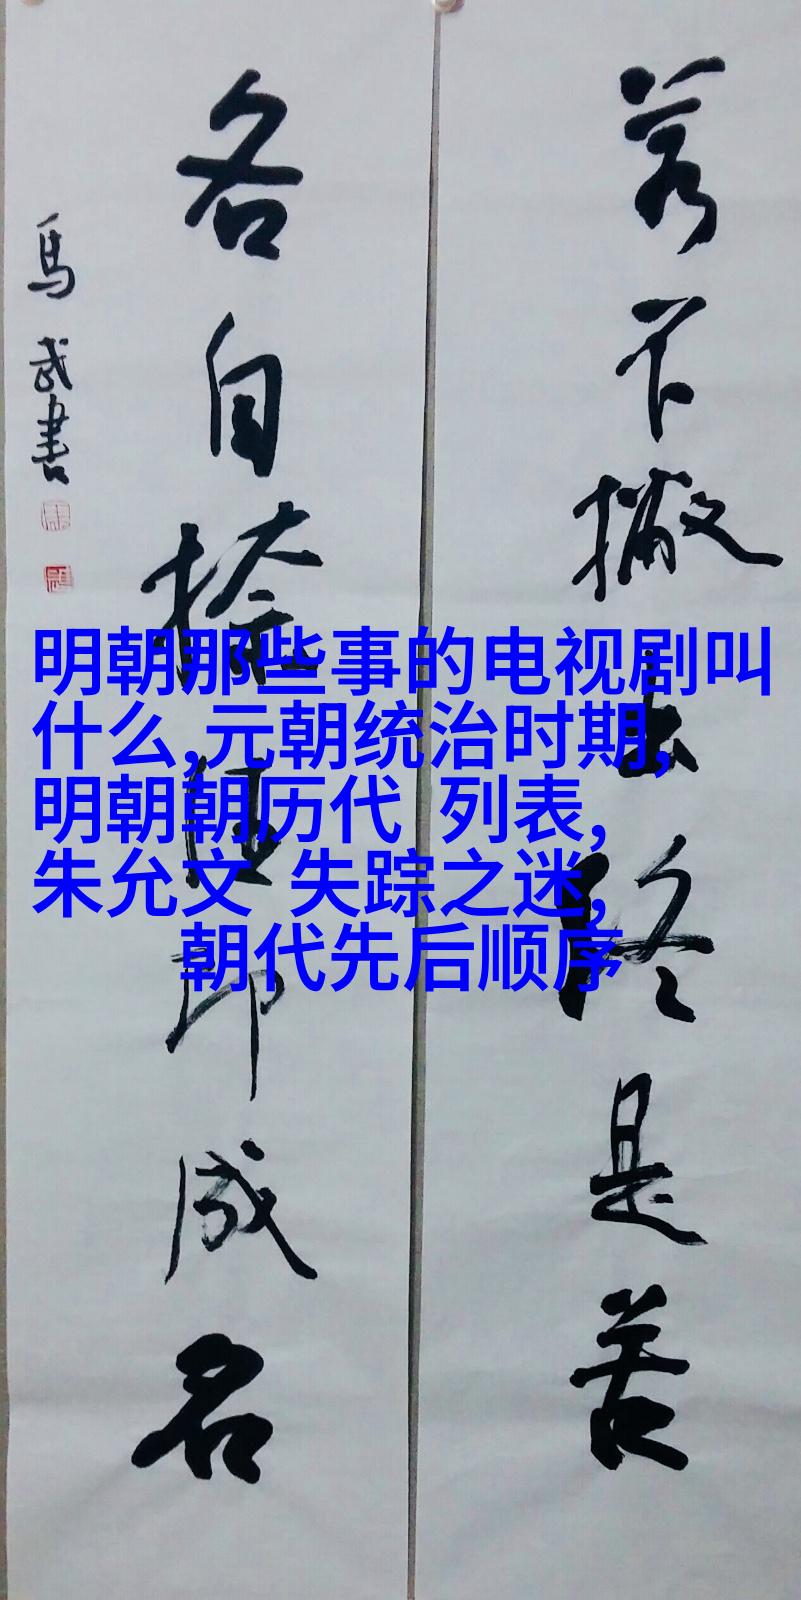 若不撇出终是苦
各自捺住即成名
馬武書
明朝那些事的电视剧叫
什么,元朝统治时期,
明朝朝历代 列表,
朱允文 失踪之迷,
朝代先后顺序